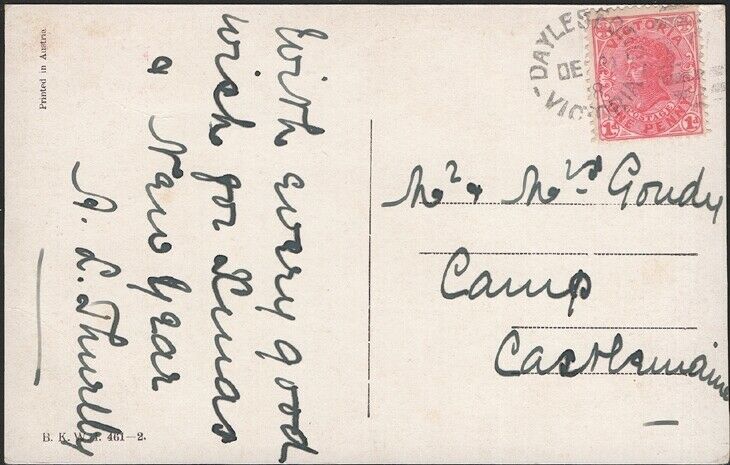 Printed in Austria.
With every good
wish for Xmas
& New Year
A. L. Thurlby
B. K. W. I. 461-2.
DAYLES
DE
VICTORIA
VICTORIA
POSTAGE
1d ONE PENNY 1d
Mr & Mrs Goudy
Camp
Castlemaine